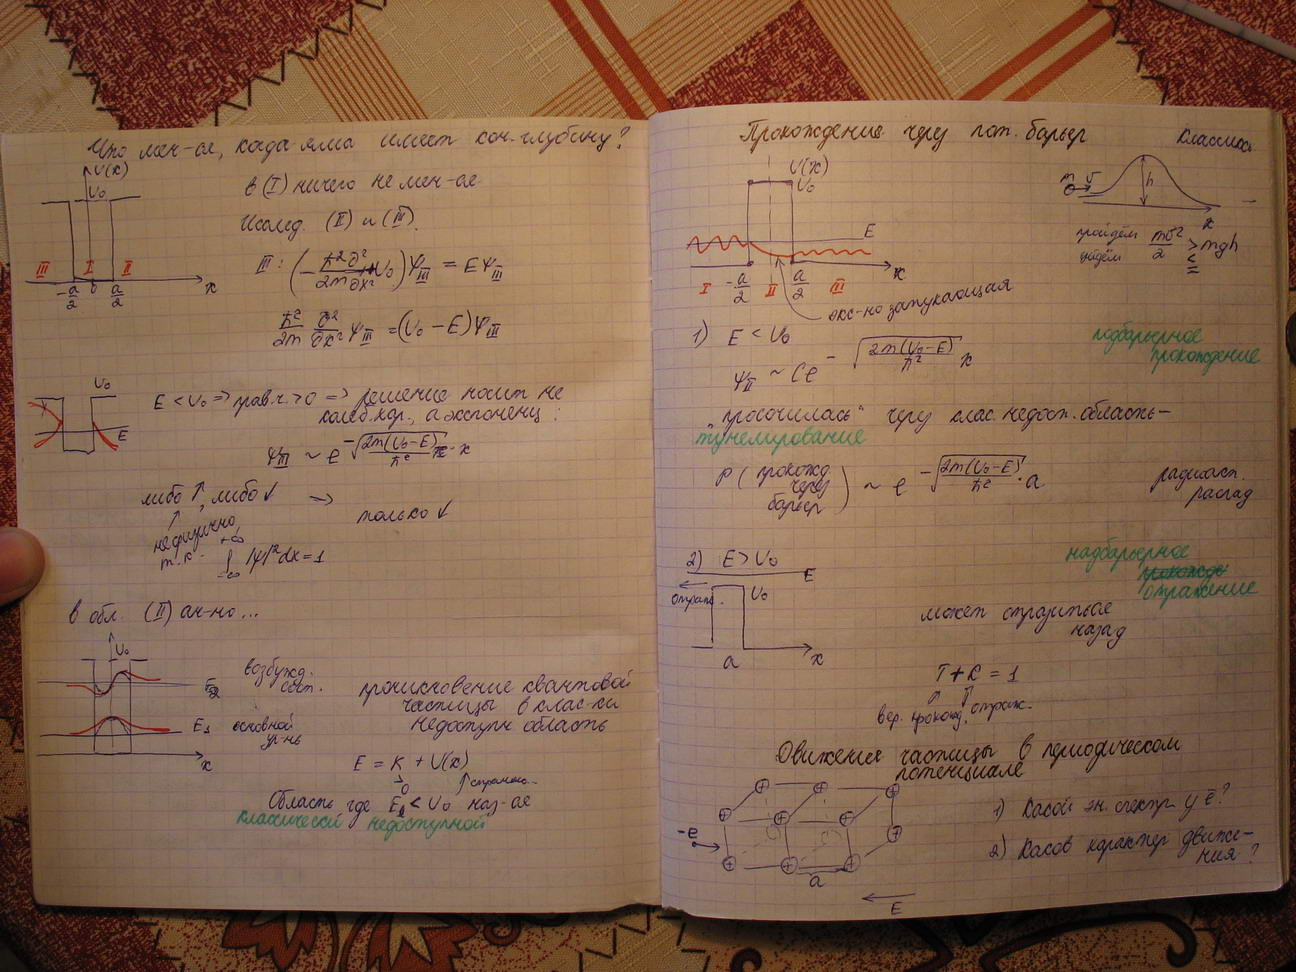 Что мен-ся, когда яма имеет кон. глубину?
U(x)
U₀
в (I) ничего не мен-ся
Исслед. (II) и (III).
III I II
-a/2 0 a/2 x
III: (-ħ²∂²/2m∂x² + U₀)Ψ_III = EΨ_III
ħ²/2m ∂²/∂x² Ψ_III = (U₀ - E)Ψ_III
U₀
E
E < U₀ => прав.ч. > 0 => решение носит не
колеб. хар., а экспоненц:
Ψ_III ~ e^(-√(2m(U₀-E)/ħ²) · x)
либо ↑, либо ↓ → только ↓
↑
нефизично,
т.к. ∫_{-∞}^{+∞} |Ψ|²dx = 1
в обл. (II) ан-но...
U₀
E₂ возбужд.
сост.
E₁ основной
ур-нь
x
проникновение квантовой
частицы в клас-ки
недоступн область
E = K + U(x)
> 0
Область где E < U₀ наз-ся
классической недоступной
Прохождение через пот. барьер
Классика
U(x)
U₀
E
x
I -a/2 II a/2 III
экс-но затухающая
m v
h
x
пройдём
mv²/2 > mgh
<
=
1) E < U₀
подбарьерное
прохождение
Ψ_II ~ Ce^(-√(2m(U₀-E)/ħ²) x)
"просочилась" через клас. недост. область -
тунелирование
P (прохожд.
через
барьер) ~ e^(-√(2m(U₀-E)/ħ²) · a)
радиоакт.
распад
2) E > U₀
надбарьерное
отражение
E
отраж.
U₀
a x
может отразиться
назад
T + R = 1
вер. прохожд. отраж.
Движение частицы в периодическом
потенциале
-e
a
E
1) Какой эн. спектр у e⁻?
2) Каков характер движе-
ния?